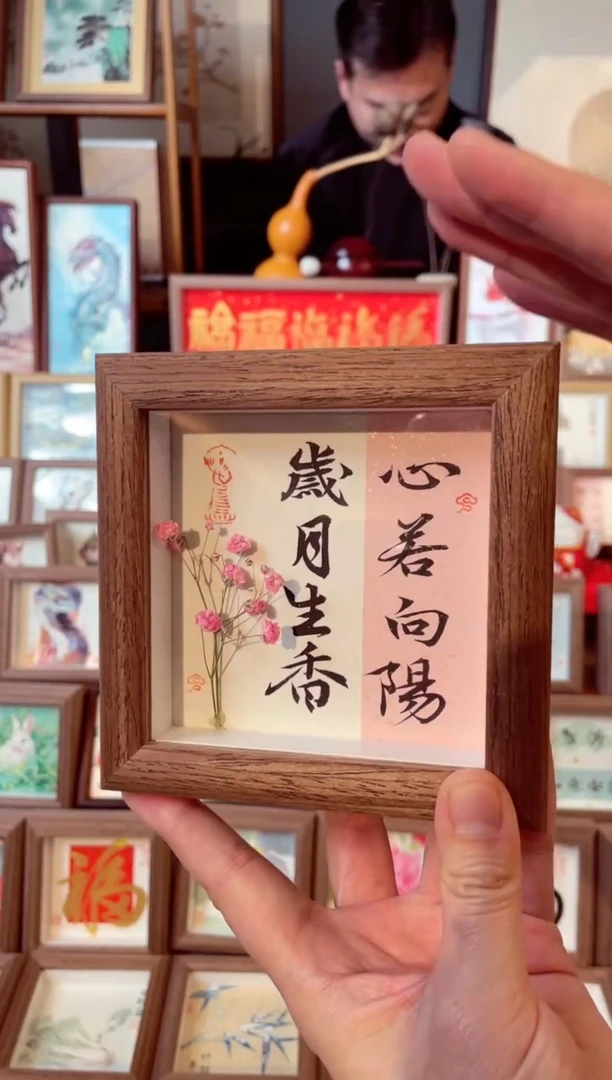 心若向陽
歲月生香
福